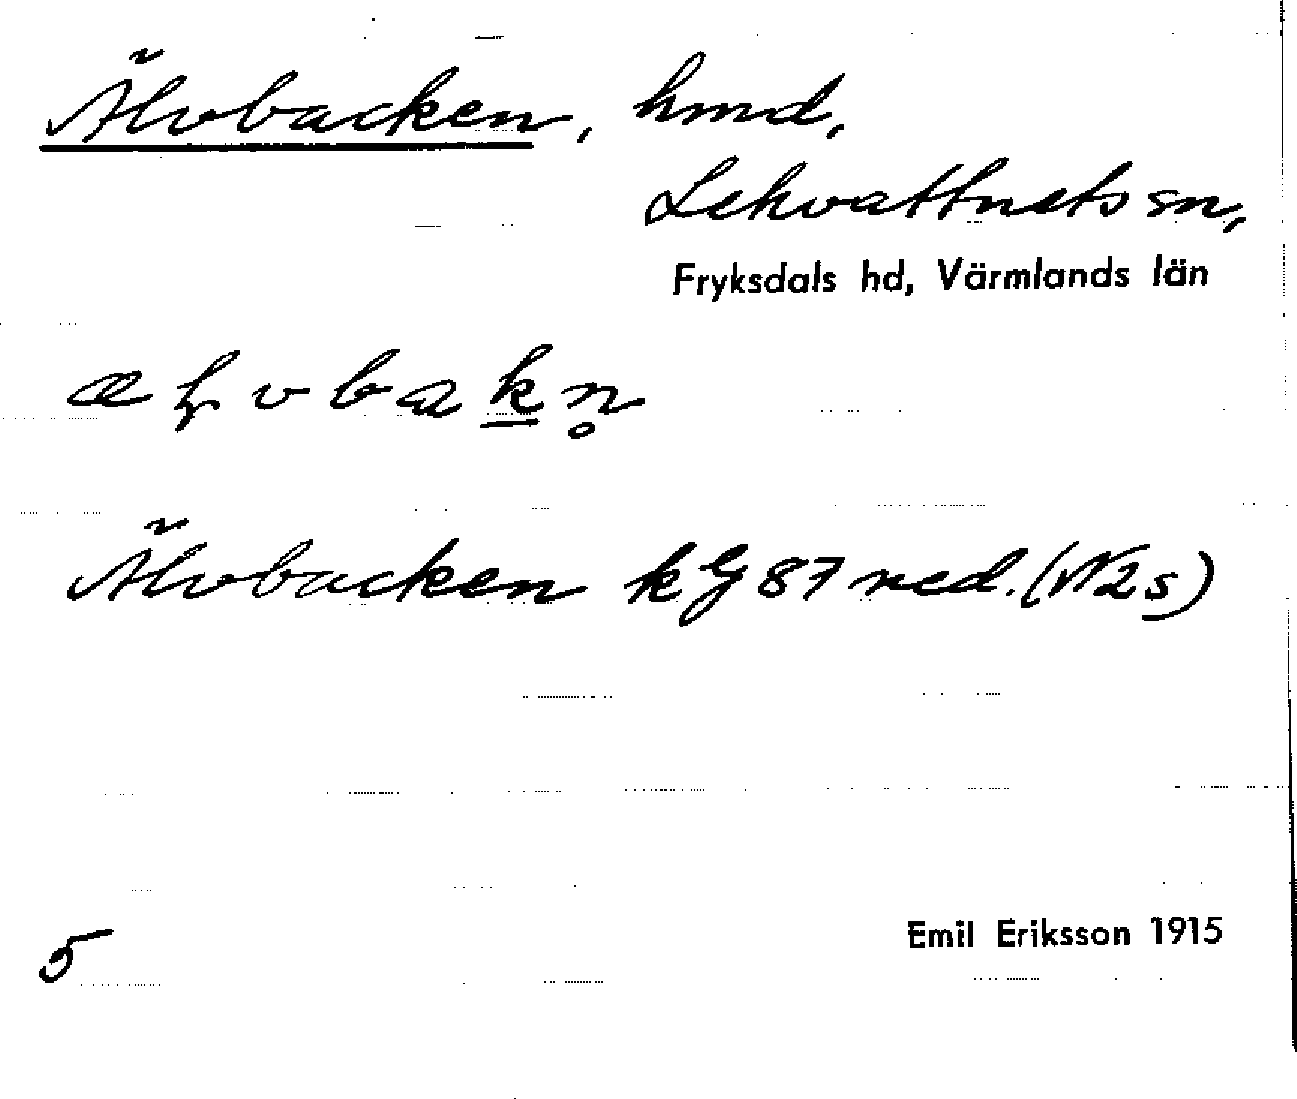 Älvbacken, hmd,
Lekvattnets sn,
Fryksdals hd, Värmlands län
æɽvbak̲n̥
Älvbacken kG 87 ned. (N2s)
5 Emil Eriksson 1915